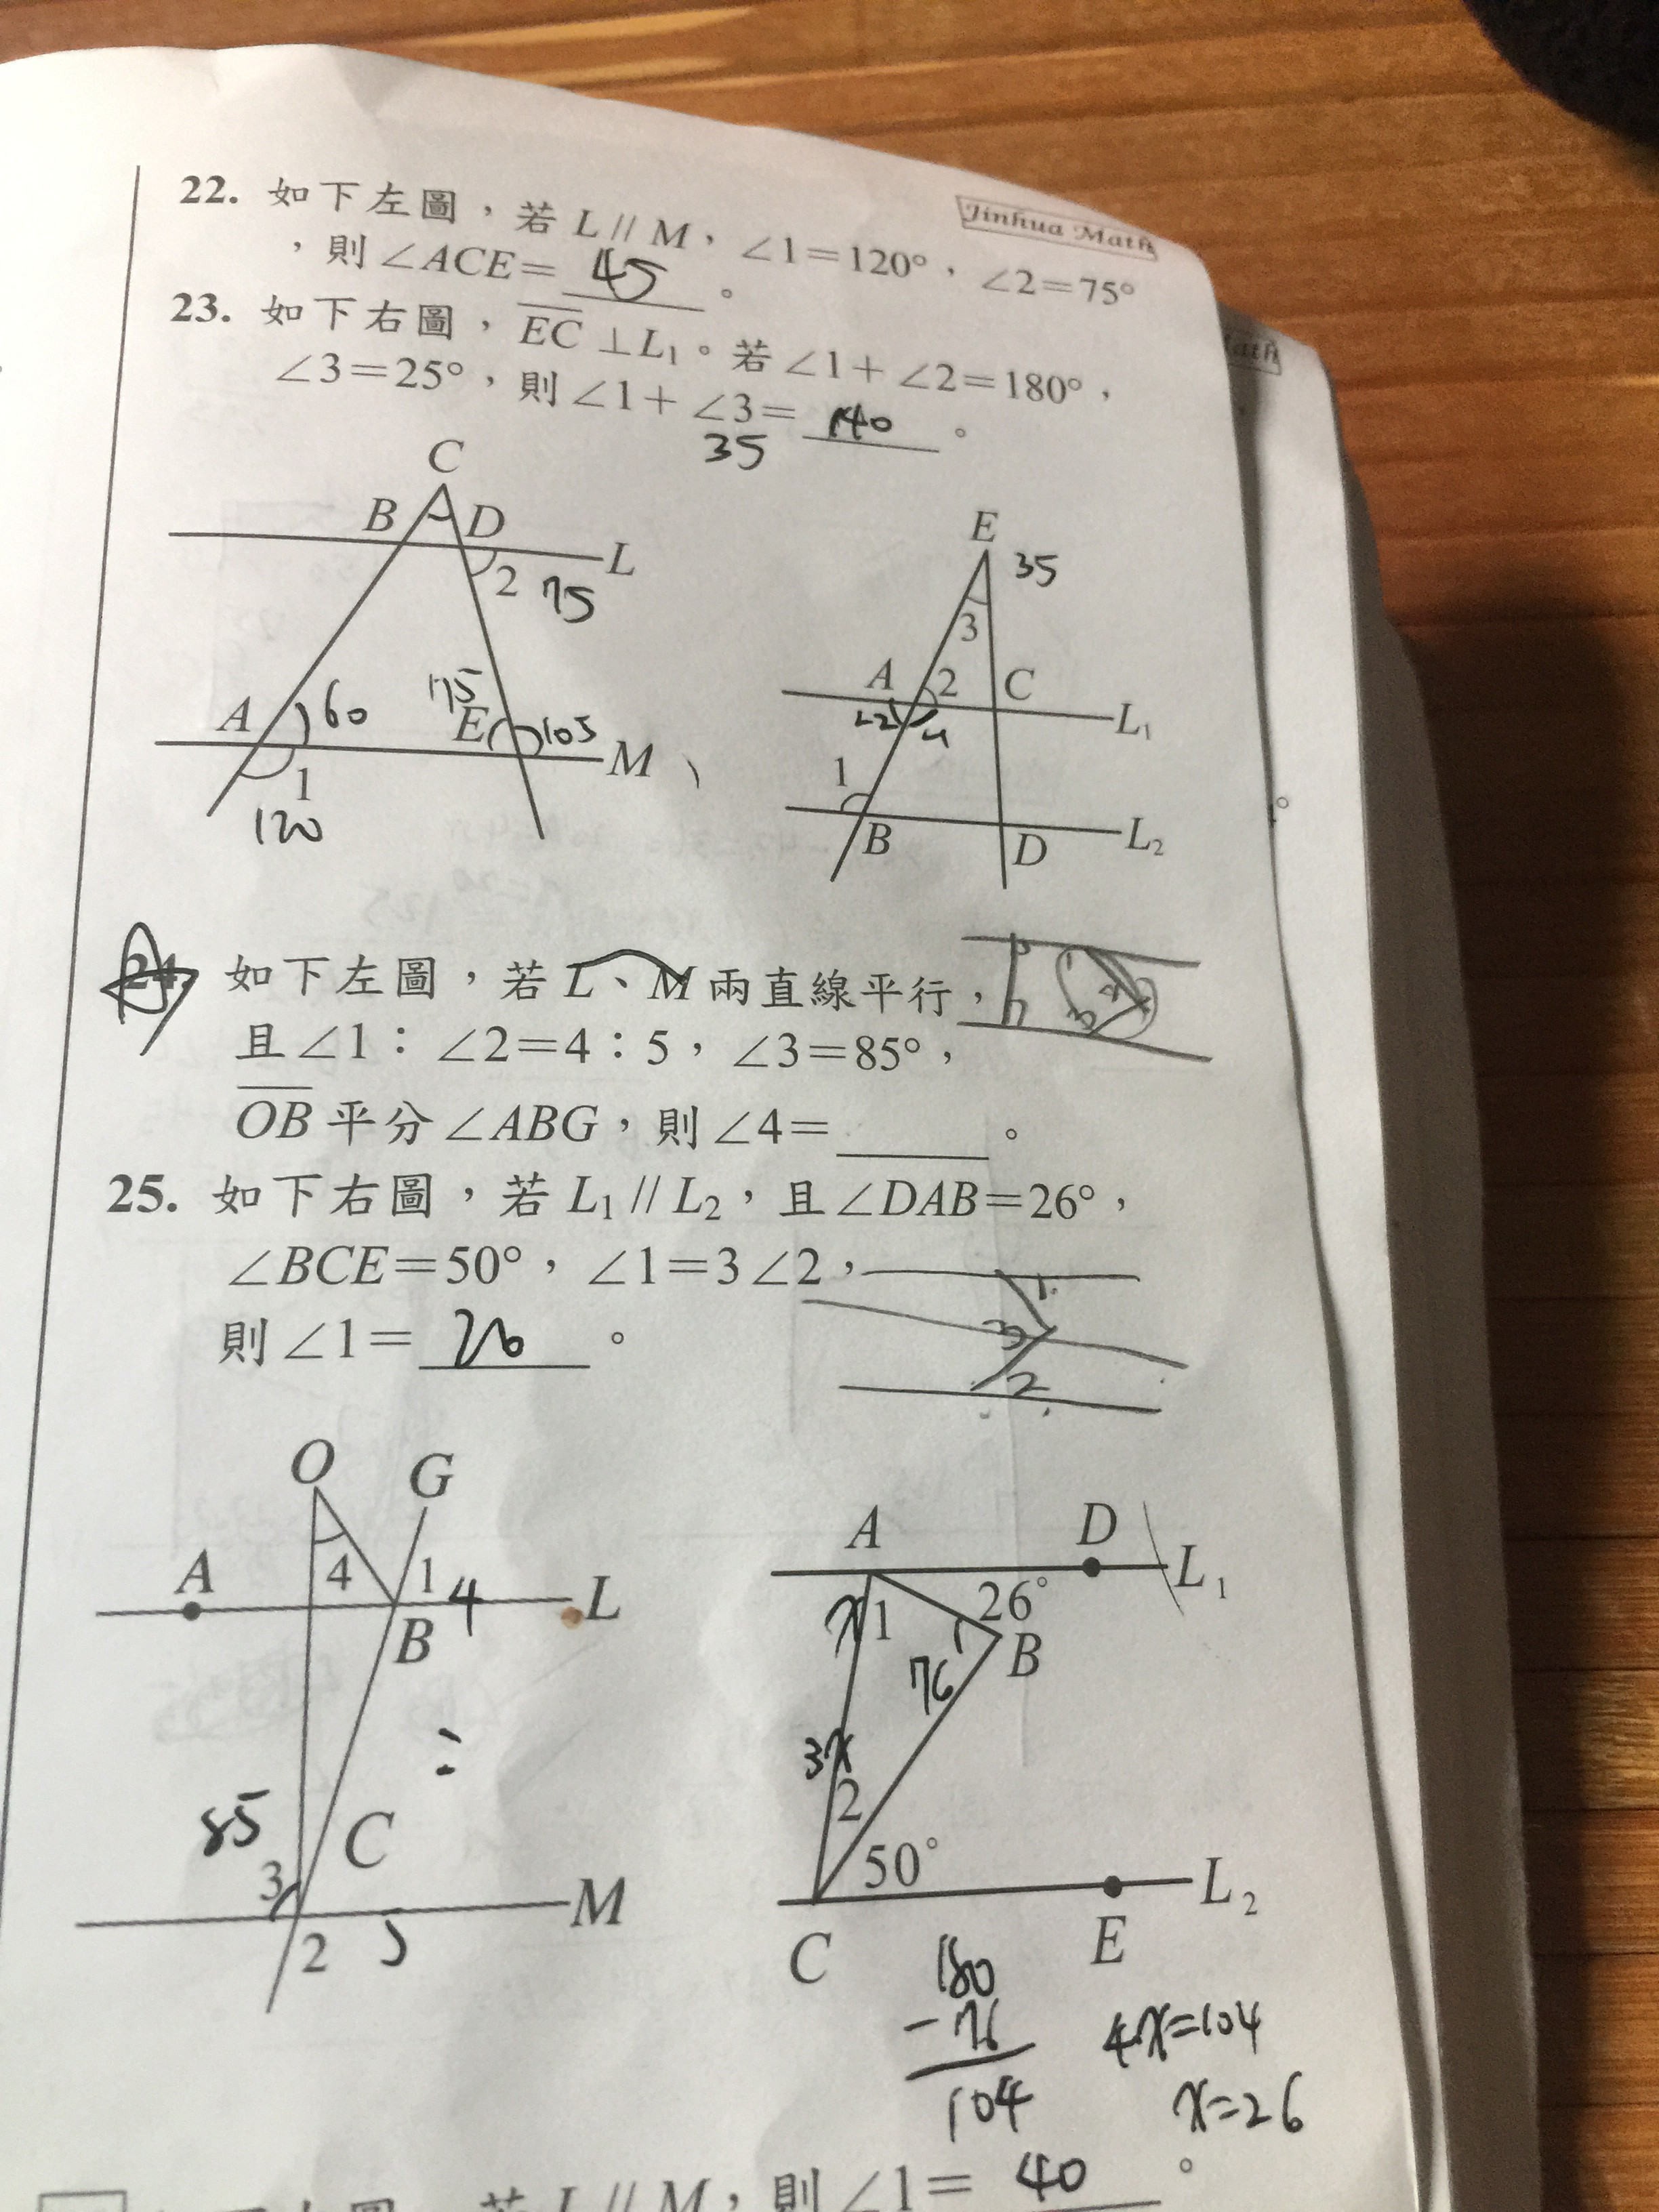 Jinhua Math
22. 如下左圖，若 L // M，∠1＝120°，∠2＝75°
，則∠ACE＝ 45 。
23. 如下右圖，EC ⊥ L1。若∠1＋∠2＝180°，
∠3＝25°，則∠1＋∠3＝ 140 。
35
C
B D
L
2 75
A 60 75 E 105
M
1
120
E 35
3
A 2 C
L1
4
1
B D L2
24. 如下左圖，若 L、M 兩直線平行，
且∠1：∠2＝4：5，∠3＝85°，
OB 平分∠ABG，則∠4＝ 。
25. 如下右圖，若 L1 // L2，且∠DAB＝26°，
∠BCE＝50°，∠1＝3∠2，
則∠1＝ 26 。
1
3
2
O G
A 4 1 4 L
B
85
C
3
M
2 5
A D L1
x 1 26°
B
76
3x
2
50°
L2
C E
180
－76
104
4x=104
x=26
若 L // M，則∠1＝ 40 。